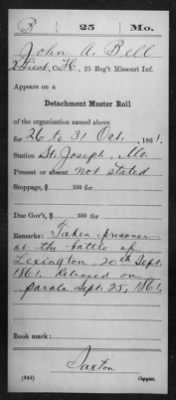 B 25 Mo.
John A. Bell
2 Lieut, Co. H, 25 Reg't Missouri Inf.
Appears on a
Detachment Muster Roll
of the organization named above
for 26 to 31 Oct., 1861.
Station St. Joseph, Mo.
Present or absent not stated
Stoppage, $ 100 for
Due Gov't, $ 100 for
Remarks: Taken prisoner
at the battle of
Lexington, 20th Sept.
1861, Released on
parole Sept. 25, 1861.
Book mark:
Saxton
(541) Copyist.